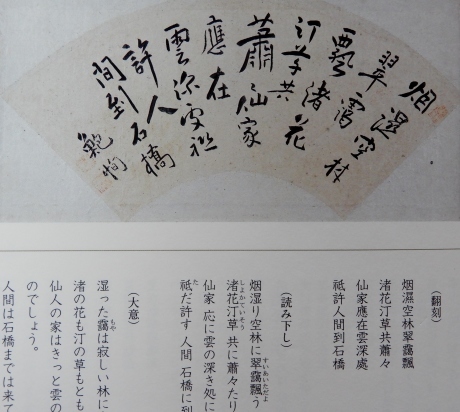 烟湿空林
翠靄
飄渚花
汀草共
蕭々仙家
應在
雲深處祗
許人
間到石橋
鮑恂
(翻刻)
烟濕空林翠靄飄
渚花汀草共蕭々
仙家應在雲深處
祗許人間到石橋
(読み下し)
烟湿り空林に翠靄飄う
渚花汀草 共に蕭々たり
仙家 応に雲の深き処に
祗だ許す 人間 石橋に到
(大意)
湿った靄は寂しい林に
渚の花も汀の草もとも
仙人の家はきっと雲の
のでしょう。
人間は石橋までは来て